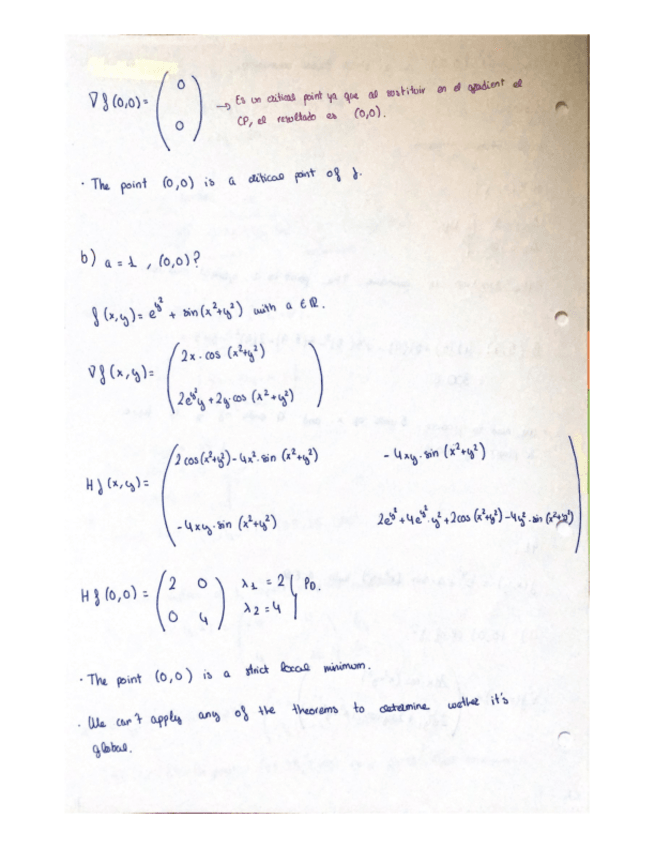 ∇f(0,0) = (0 0) → Es un critical point ya que al sustituir en el gradient el
CP, el resultado es (0,0).
· The point (0,0) is a critical point of f.
b) a = 1, (0,0)?
f(x,y) = e^{y²} + sin(x²+y²) with a ∈ ℝ.
∇f(x,y) = ( 2x·cos(x²+y²)
2e^{y²}y + 2y·cos(x²+y²) )
Hf(x,y) = ( 2cos(x²+y²) - 4x²·sin(x²+y²)   - 4xy·sin(x²+y²)
- 4xy·sin(x²+y²)   2e^{y²} + 4e^{y²}·y² + 2cos(x²+y²) - 4y²·sin(x²+y²) )
Hf(0,0) = ( 2 0   λ₁ = 2 } PD.
0 4 )   λ₂ = 4
· The point (0,0) is a strict local minimum.
· We can't apply any of the theorems to determine wether it's
global.